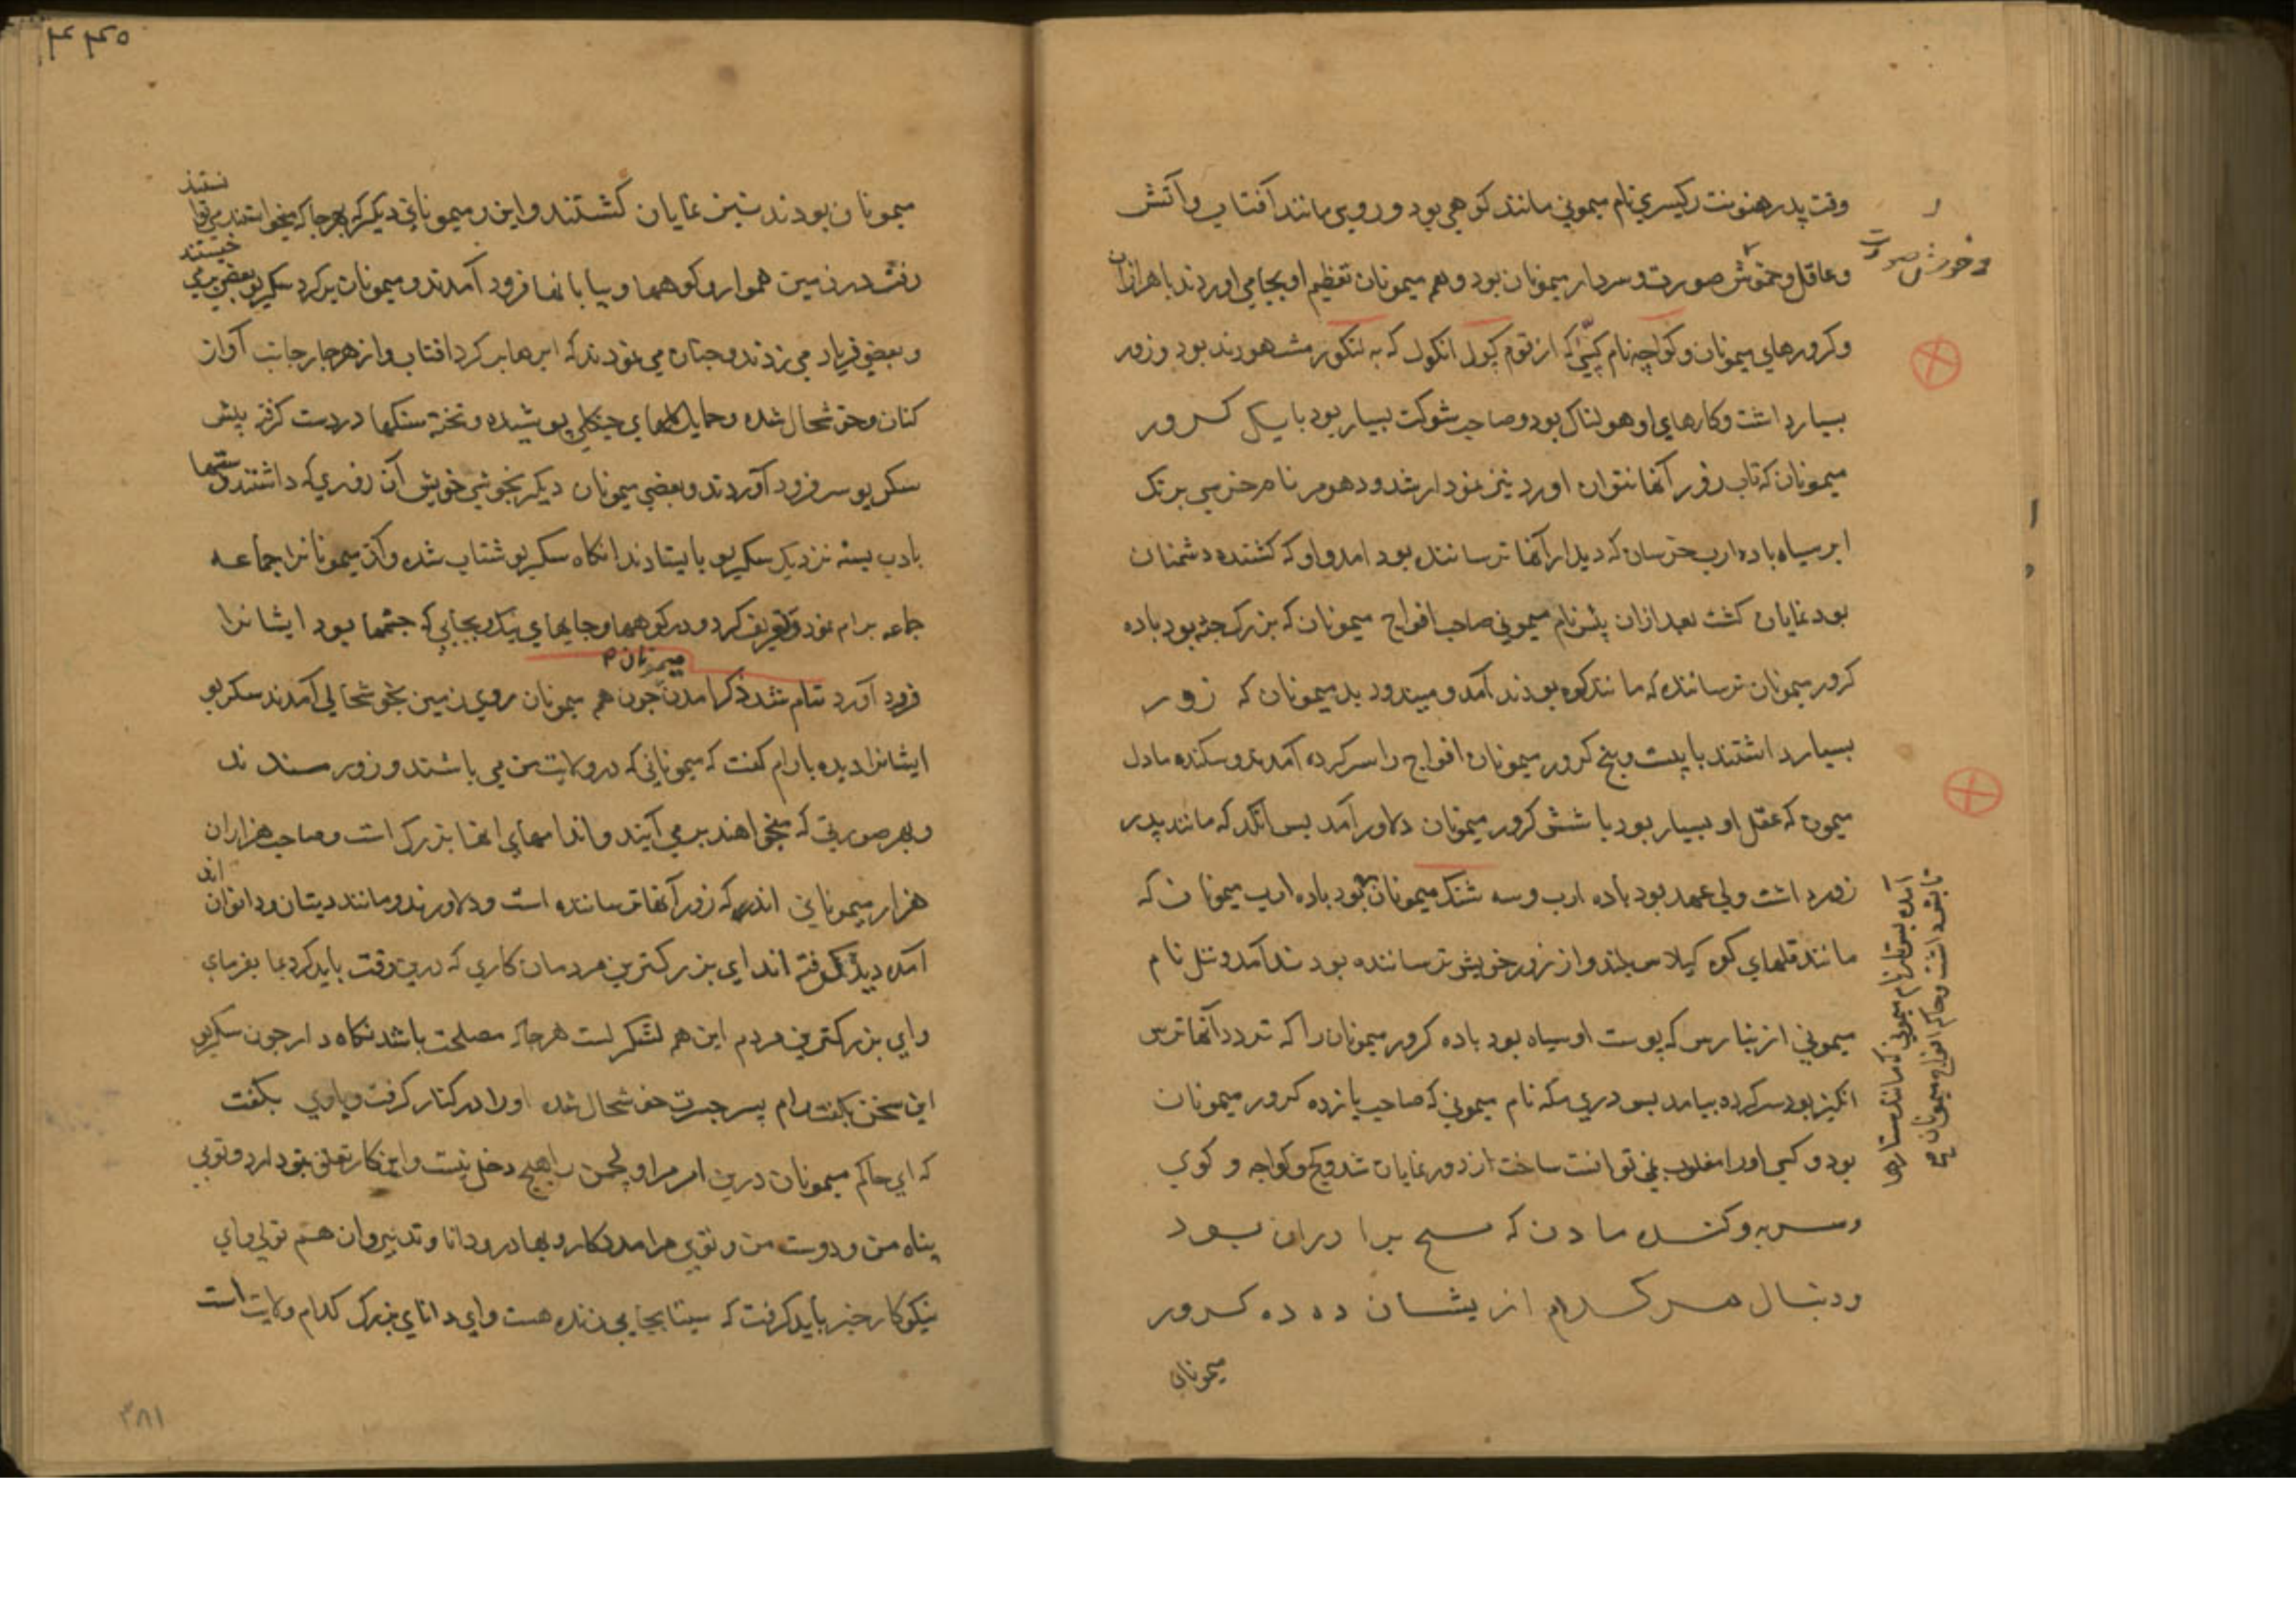 وقت پدر هنونت رکیسری نام میمونی مانند کوهی بود و روی مانند آفتاب و آتش
وعاقل و خوش صورت و سردار میمونان بود و همه میمونان تعظیم او بجا می اوردند با هزاران
وخوش صورت
وکرورهای میمونان و کواچه نام که از قوم کول انکول که به لنکور مشهورند بود وزور
بسیار داشت وکارهای او هولناک بود و صاحب شوکت بسیار بود با یک کرور
میمونان که تاب زور آنها نتوان اورد نیز نمودار شد و دهومر نام خرسی برنک
ابر سیاه با ده ارب خرسان که دیدار آنها ترساننده بود امد و او که کشنده دشمنان
بود نمایان کشت بعد ازان پنس نام میمونی صاحب افواج میمونان که بزرک جثه بود با ده
کرور میمونان ترساننده که مانند کوه بودند آمد و میندو دبد میمونان که زور
بسیار داشتند با بیست و پنج کرور میمونان افواج را سر کرده آمدند و سکنده مادل
میمون که عقل او بسیار بود با شش کرور میمونان دلاور آمد پس انکد که مانند پدر
زور داشت ولی عهد بود با ده ارب و سه شنک میمونان بود با ده ارب میمونان که
مانند قلهای کوه کیلاس بلند و از زور خویش ترساننده بودند آمد و نل نام
میمونی از بنارس که پوست او سیاه بود با ده کرور میمونان را که تردد آنها ترس
انکیز بود سر کرده بیامد پس دری مکه نام میمونی که صاحب یازده کرور میمونان
بود و کسی او را مغلوب نمی توانست ساخت از دور نمایان شد و کج و کواچه و کوی
ودنبال هر کدام ازیشان ده ده کرور
میمونان
آمده پس تار نام میمونی که مانند ستارها
تابش داشت و حاکم افواج میمونان
۴۴۵
میمونان بودند نیز نمایان کشتند و این میمونانی دیکر که بهر جا که میخواستند می توا
نستند
رفت در زمین هموار و کوهها و بیابانها فرود آمدند و میمونان بر کرد سکریو بعضی می
خستند
وبعضی فریاد می زدند و چنان می نمودند که ابرها بر کرد افتاب و از هر چار جانب آواز
کنان و خوشحال شده وحمایل کلهای جنکلی پوشیده و تخته سنکها در دست کرفته پیش
سکریو سر فرود آوردند و بعضی میمونان دیکر بخوشی خویش آن زوری که داشتند و دستها
بادب بسته نزدیک سکریو بایستادند انکاه سکریو شتاب شده و آن میمونانرا جماعه
جماعه برام نمود و تعریف کرد و در کوهها و جایهای نیک و بجایی که چشمها بود ایشانرا
فرود آورد تمام شد ذکر امدن میمونان چون همه میمونان روی زمین بخوشحالی آمدند سکریو
ایشانرا دیده بارام کفت که میمونانی که در ولایت من می باشند و زور مندند
وبهر صورتی که میخواهند بر می آیند و اندامهای انها بزرک است و صاحب هزاران
هزار میمونانی اند که زور آنها ترساننده است و دلاورند و مانند دیتان و دانوان
اند
آمده دیره کرفته اند ای بزرکترین مردمان کاری که درین وقت باید کرد بما بفرمای
وای بزرکترین مردم این همه لشکر تست هر جا که مصلحت باشد نکاه دار چون سکریو
این سخن بکفت رام پسر جسرت خوشحال شده او را در کنار کرفت و باوی بکفت
که ای حاکم میمونان درین امر مرا و لچمن را هیچ دخل نیست و این کار تعلق بتو دارد و تویی
پناه من و دوست من و تویی مرا مددکار و بهادر و دانا و تدبیر دان هم تویی و ای
نیکوکار خبر باید کرفت که سیتا بجایی زنده هست و ای دانای بزرک کدام ولایت است
۳۸۱